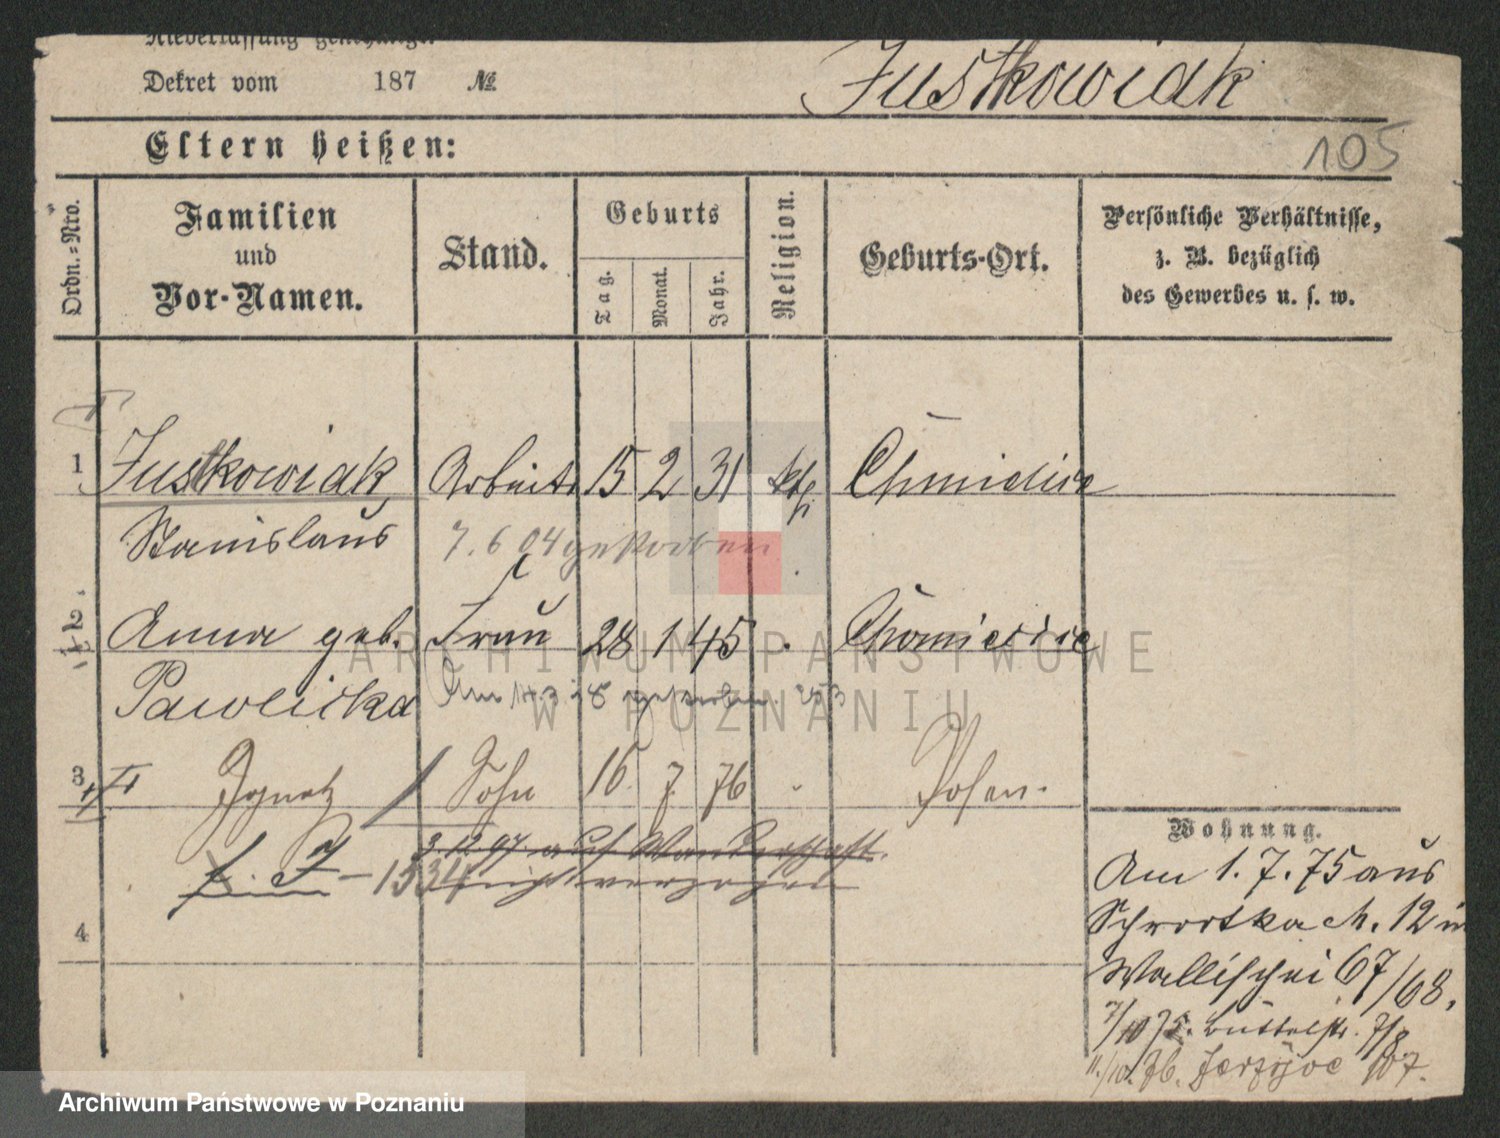 Niederlassung genehmigt.
Dekret vom 187 №
Justkowiak
Eltern heißen:
105
Ordn.-Nro.
Familien
und
Vor-Namen.
Stand.
Geburts
Tag.
Monat.
Jahr.
Religion.
Geburts-Ort.
Persönliche Verhältnisse,
z. B. bezüglich
des Gewerbes u. s. w.
1 Justkowiak Arbeiter 15 2 31 kth
Stanislaus 7. 6 04 gestorben
2 Anna geb. Frau 28 1 45
Pawlicka
3 Ignatz Sohn 16 7 76 Posen.
3.12 97 auf Wanderschaft.
f. J - 1334
4
Wohnung.
Am 1. 7. 75 aus
Schrodka M. 12 in
Wallischei 67/68.
7/10 75. Büttelstr. 7/8
11./10. 76. Jerzyce 107.
ARCHIWUM PAŃSTWOWE
W POZNANIU
Archiwum Państwowe w Poznaniu